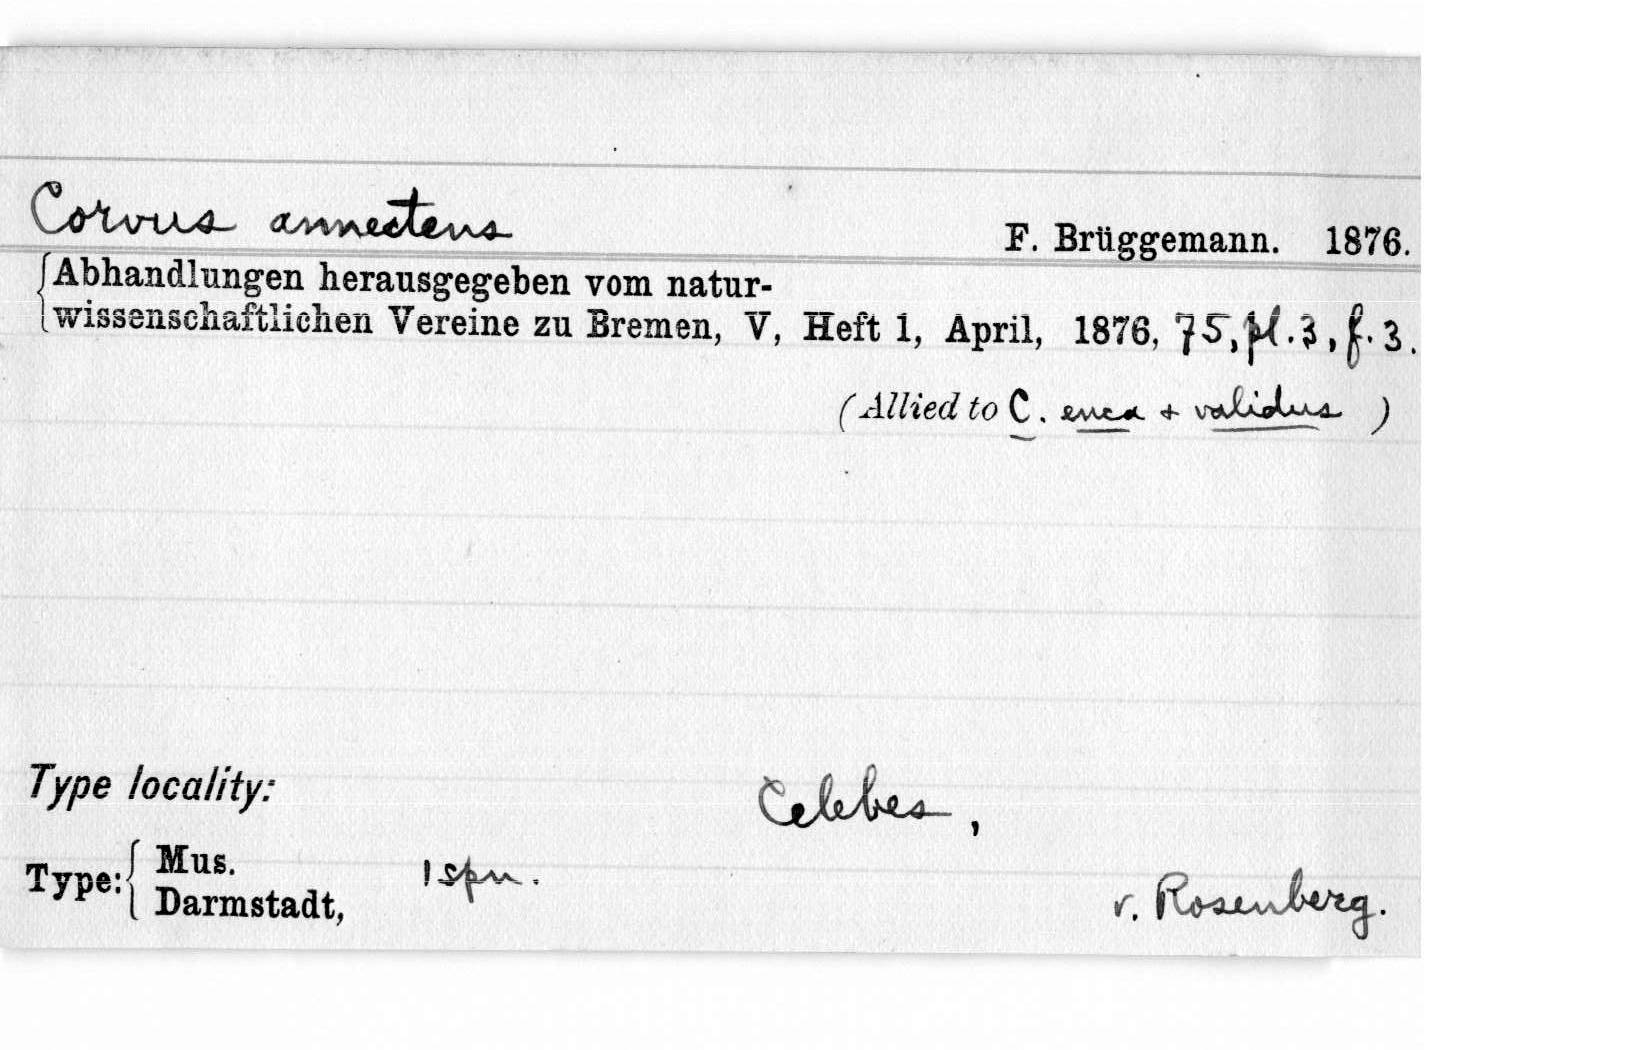 Corvus annectens F. Brüggemann. 1876.
Abhandlungen herausgegeben vom natur-
wissenschaftlichen Vereine zu Bremen, V, Heft 1, April, 1876, 75, pl. 3, f. 3.
(Allied to C. enca + validus )
Type locality: Celebes,
Type: Mus. Darmstadt, 1 spn. v. Rosenberg.